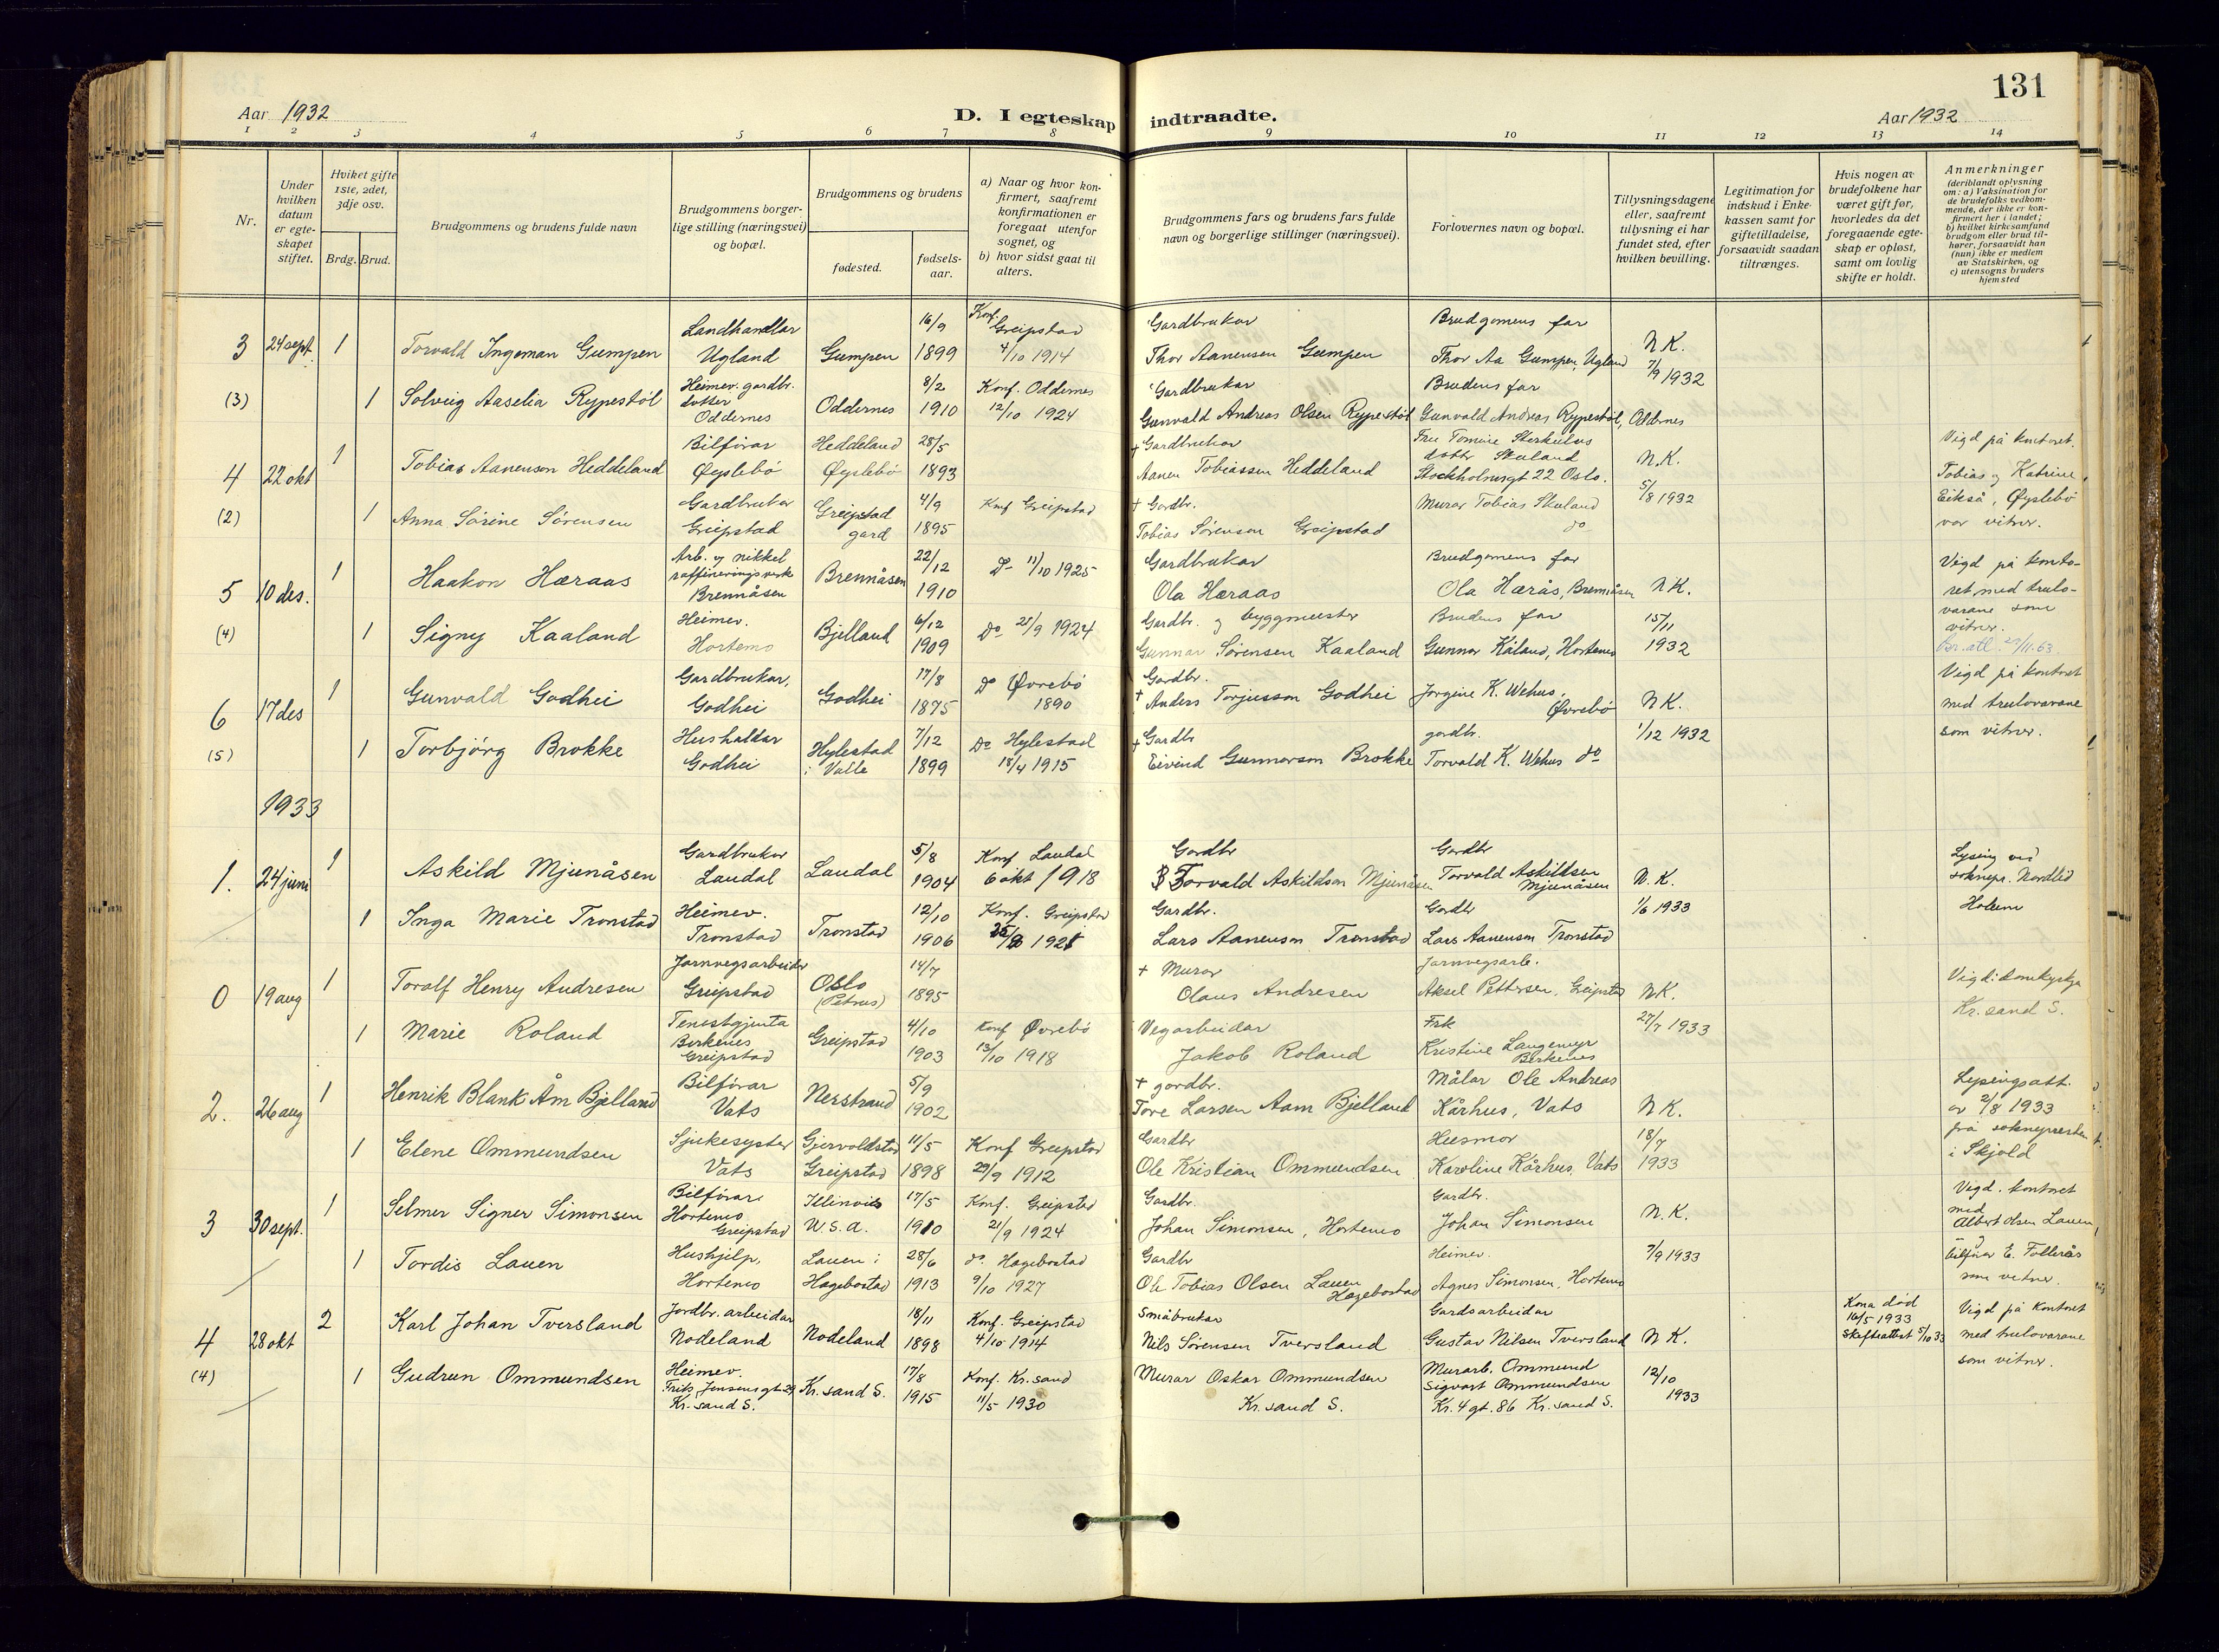 131
Aar 1932
D. I egteskap indtraadte.
Aar 1932
1 2 3 4 5 6 7 8 9 10 11 12 13 14
Nr.
Under hvilken datum er egte-skapet stiftet.
Hviket gifte 1ste, 2det, 3dje osv.
Brdg. Brud.
Brudgommens og brudens fulde navn
Brudgommens borger-lige stilling (næringsvei) og bopæl.
Brudgommens og brudens
fødested.
fødsels-aar.
a) Naar og hvor kon-firmert, saafremt konfirmationen er foregaat utenfor sognet, og
b) hvor sidst gaat til alters.
Brudgommens fars og brudens fars fulde navn og borgerlige stillinger (næringsvei).
Forlovernes navn og bopæl.
Tillysningsdagene eller, saafremt tillysning ei har fundet sted, efter hvilken bevilling.
Legitimation for indskud i Enke-kassen samt for giftetilladelse, forsaavidt saadan tiltrænges.
Hvis nogen av brudefolkene har været gift før, hvorledes da det foregaaende egte-skap er opløst, samt om lovlig skifte er holdt.
Anmerkninger
(deriblandt oplysning om: a) Vaksination for de brudefolks vedkom-mende, der ikke er kon-firmert her i landet; b) hvilket kirkesamfund brudgom eller brud til-hører, forsaavidt han (hun) ikke er medlem av Statskirken, og c) utensogns bruders hjemsted
3 24 sept. 1 Torvald Ingeman Gumpen Landhandlar Ugland Gumpen 16/9 1899 Konf. Greipstad 4/10 1914 Gardbrukar Thor Aanensen Gumpen Brudgomens far Thor Aa Gumpen, Ugland N.K. 7/9 1932
(3) 1 Solveig Aaselia Rypestøl Heimev. gardbr. dotter Oddernes Oddernes 8/2 1910 Konf. Oddernes 12/10 1924 Gardbrukar Gunvald Andreas Olsen Rypestøl Brudens far Gunvald Andreas Rypestøl, Oddernes
4 22 okt 1 Tobias Aanenson Heddeland Bilførar Øyslebø Heddeland Øyslebø 28/5 1893 + Gardbrukar Aanen Tobiassen Heddeland Fru Tomine Skuland Stockholmsgt 22 Oslo. N.K. 5/8 1932 Vigd på kontoret. Tobias og Katrine Eikså, Øyslebø var vitner.
(2) 1 Anna Sørine Sørensen Gardbrukar Greipstad Greipstad gard 4/9 1895 Konf Greipstad + Gardbr. Tobias Sørenson Greipstad Murar Tobias Skuland do
5 10 des. 1 Haakon Hæraas Arb. v nikkel raffineringsverk Brennåsen Brennåsen 22/12 1910 Do 11/10 1925 Gardbrukar Ola Hæraas Brudgomens far Ola Hærås, Brennåsen N.K. 15/11 1932 Vigd på konto-ret med trulo-varane som vitner.
(4) 1 Signy Kaaland Heimev. Hortemo Bjelland 6/12 1909 Do 21/9 1924 Gardbr. og byggmeister Gunnar Sørensen Kaaland Brudens far Gunnar Kåland, Hortemo
6 17 des 1 Gunvald Godhei Gardbrukar, Godhei Godhei 17/8 1875 Do Øvrebø 1890 Gardbr. + Anders Torjusson Godhei Jorgine K. Wehus, Øvrebø N.K. 1/12 1932 Vigd på kontoret med trulovarane som vitner.
(5) 1 Torbjörg Brokke Hushaldar Godhei Hylestad i Valle 7/12 1899 Do Hylestad 18/4 1915 + Gardbr Eivind Gunnarson Brokke gardbr. Torvald K. Wehus do
1933
1. 24 juni 1 Askild Mjunåsen Gardbrukar Laudal Laudal 5/8 1904 Konf Laudal 6 okt 1918 Gardbr Torvald Askildson Mjunåsen Gardbr Torvald Askildsen Mjunåsen N.K. 1/6 1933 Lysing ved soknepr. Nordlid Holum
1 Inga Marie Tronstad Heimev. Tronstad Tronstad 12/10 1906 Konf. Greipstad Gardbr. Lars Aanenson Tronstad Gardbr Lars Aanenson Tronstad
0 19 aug 1 Toralf Henry Andresen Jarnvegsarbeidar Greipstad Oslo (Petrus) 14/7 1895 + Murar Olaus Andresen Jarnvegsarb. Aksel Pettersen, Greipstad N.K. 27/7 1933 Vigd i domkyrkja Kr.sand S.
1 Marie Roland Tenestgjenta Birkenes Greipstad Greipstad 4/10 1903 Konf Øvrebø 13/10 1918 Vegarbeidar Jakob Roland Frk Kristine Langemyr Birkenes
2. 26 aug 1 Henrik Blank Åm Bjelland Bilførar Vats Nerstrand 5/9 1902 + gardbr. Tore Larsen Aam Bjelland Målar Ole Andreas Kårhus, Vats N.K. 18/7 1933 Lysingsatt. av 2/8 1933 frå soknepresten i Skjold
1 Elene Ommundsen Sjukesyster Vats Gjervoldstad Greipstad 11/5 1898 Konf Greipstad 29/9 1912 Gardbr Ole Kristian Ommundsen Husmor Karoline Kårhus, Vats
3 30 sept. 1 Selmer Signer Simonsen Bilførar Hortemo Greipstad Illinois U.S.A. 17/5 1910 Konf. Greipstad 21/9 1924 Gardbr. Johan Simonsen, Hortemo Gardbr. Johan Simonsen N.K. 7/9 1933 Vigd. kontoret med Albert Olsen Lauen, og bilførar E. Tollerås som vitner.
1 Tordis Lauen Hushjelp, Hortemo Lauen i Hægebostad 28/6 1913 do. Hægebostad 9/10 1927 Gardbr Ole Tobias Olsen Lauen Hægebostad Heimev. Agnes Simonsen, Hortemo
4 28 okt 2 Karl Johan Tversland Jordbr. arbeidar Nodeland Nodeland 18/11 1898 Konf. Greipstad 4/10 1914 Småbrukar Nils Sørensen Tversland Gardsarbeidar Gustav Nilsen Tversland N.K. 12/10 1933 Kona død 16/5 1933 Skifteattest 5/10 33 Vigd på kontoret med trulovarane som vitner.
(4) 1 Gudrun Ommundsen Heimev. Frits Jensens gt. 29 Kr.sand S. Kr.sand S. 17/8 1915 Konf. Kr.sand 11/5 1930 Murar Oskar Ommundsen Kr.sand S. Murarb. Ommund Sigvart Ommundsen Kr. 4 gt. 86 Kr.sand S.